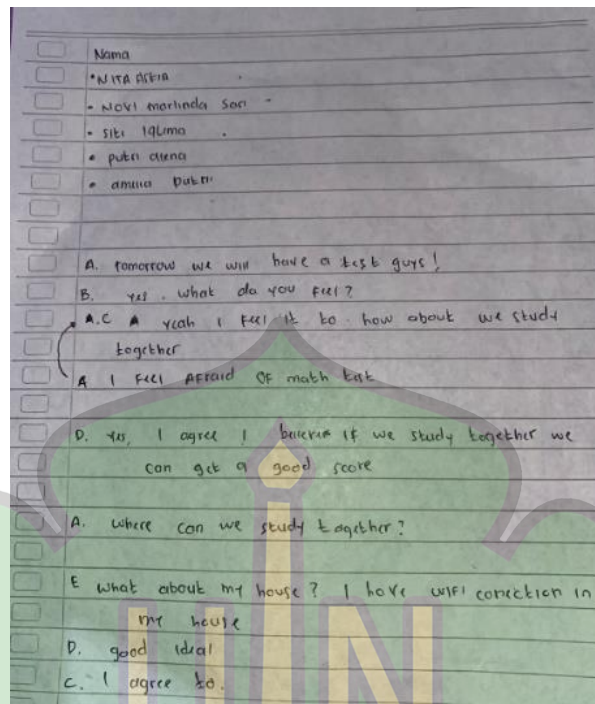 Nama
• NITA ASTIA
- NOVI marlinda sari -
- siti Iqlima .
• putri diena
• amilia putri
A. tomorrow we will have a test guys!
B. yes. what do you feel?
A.C A yeah I feel it to. how about we study
together
A I feel Afraid OF math test
D. Yes, I agree I believe if we study together we
can get a good score
A. where can we study together?
E what about my house? I have WIFI conection in
my house
D. good ideal
C. I agree to.
UIN